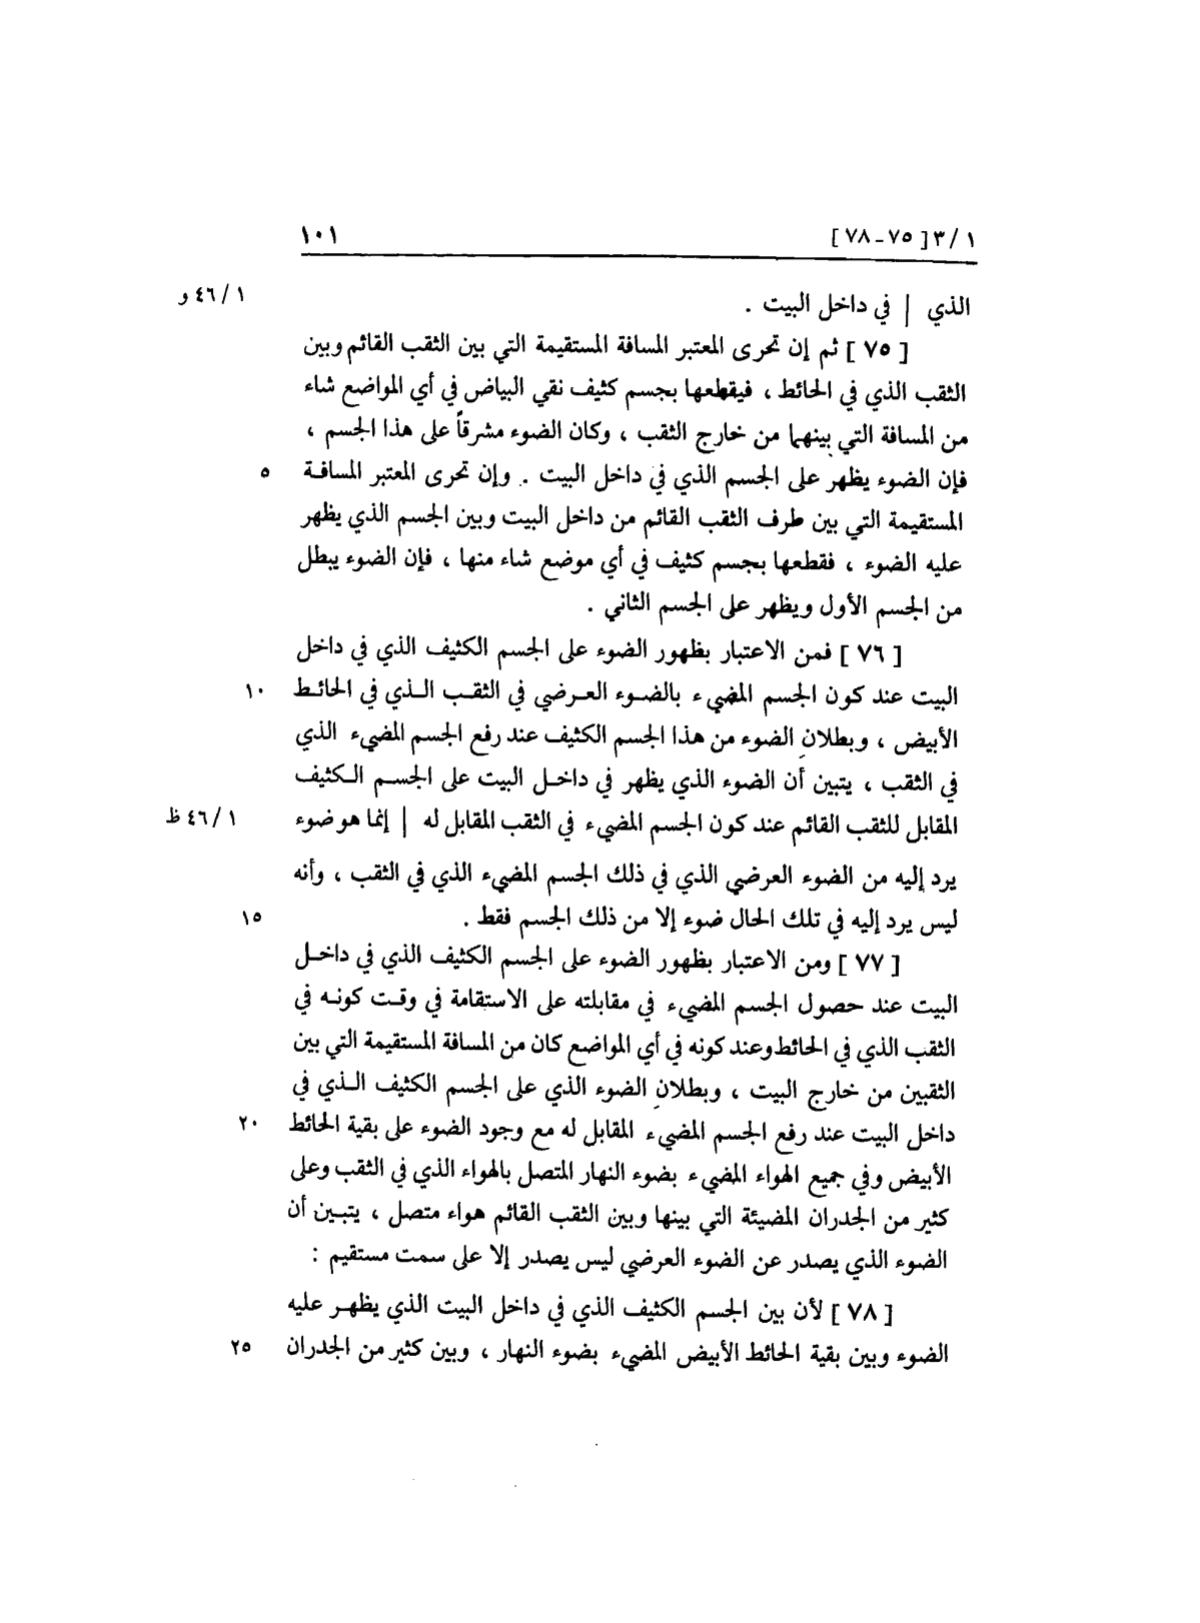 ١ / ٣ [ ٧٥ - ٧٨ ] ١٠١
الذي | في داخل البيت . ١ / ٤٦ و
[ ٧٥ ] ثم إن تحرى المعتبر المسافة المستقيمة التي بين الثقب القائم وبين
الثقب الذي في الحائط ، فيقطعها بجسم كثيف نقي البياض في أي المواضع شاء
من المسافة التي بينهما من خارج الثقب ، وكان الضوء مشرقاً على هذا الجسم ،
فإن الضوء يظهر على الجسم الذي في داخل البيت . وإن تحرى المعتبر المسافة ٥
المستقيمة التي بين طرف الثقب القائم من داخل البيت وبين الجسم الذي يظهر
عليه الضوء ، فقطعها بجسم كثيف في أي موضع شاء منها ، فإن الضوء يبطل
من الجسم الأول ويظهر على الجسم الثاني .
[ ٧٦ ] فمن الاعتبار بظهور الضوء على الجسم الكثيف الذي في داخل
البيت عند كون الجسم المضيء بالضوء العرضي في الثقب الذي في الحائط ١٠
الأبيض ، وبطلان الضوء من هذا الجسم الكثيف عند رفع الجسم المضيء الذي
في الثقب ، يتبين أن الضوء الذي يظهر في داخل البيت على الجسم الكثيف
المقابل للثقب القائم عند كون الجسم المضيء في الثقب المقابل له | إنما هو ضوء ١ / ٤٦ ظ
يرد إليه من الضوء العرضي الذي في ذلك الجسم المضيء الذي في الثقب ، وأنه
ليس يرد إليه في تلك الحال ضوء إلا من ذلك الجسم فقط . ١٥
[ ٧٧ ] ومن الاعتبار بظهور الضوء على الجسم الكثيف الذي في داخل
البيت عند حصول الجسم المضيء في مقابلته على الاستقامة في وقت كونه في
الثقب الذي في الحائط وعند كونه في أي المواضع كان من المسافة المستقيمة التي بين
الثقبين من خارج البيت ، وبطلان الضوء الذي على الجسم الكثيف الذي في
داخل البيت عند رفع الجسم المضيء المقابل له مع وجود الضوء على بقية الحائط ٢٠
الأبيض وفي جميع الهواء المضيء بضوء النهار المتصل بالهواء الذي في الثقب وعلى
كثير من الجدران المضيئة التي بينها وبين الثقب القائم هواء متصل ، يتبين أن
الضوء الذي يصدر عن الضوء العرضي ليس يصدر إلا على سمت مستقيم :
[ ٧٨ ] لأن بين الجسم الكثيف الذي في داخل البيت الذي يظهر عليه
الضوء وبين بقية الحائط الأبيض المضيء بضوء النهار ، وبين كثير من الجدران ٢٥